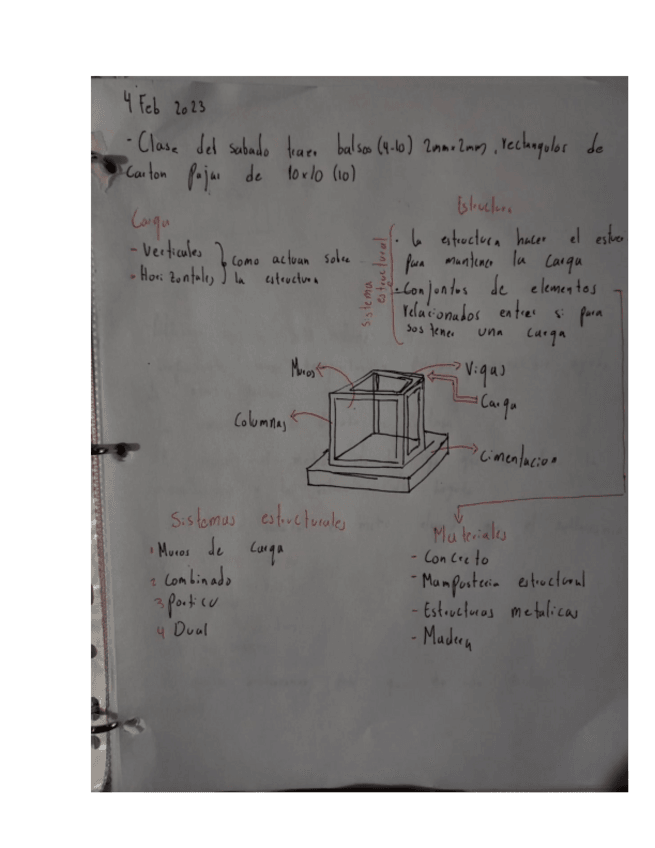 4 Feb 2023
- Clase del sabado traer balsos (4-10) 2mm x 2mm, rectangulos de
Carton Pajar de 10x10 (10)
Carga
- Verticales
- Horizontales
como actuan sobre
la estructura
Estructura
sistema
estructural
- la estructura hacer el esfuer
para mantener la carga
- Conjuntos de elementos
relacionados entres si para
sostener una carga
Muros
Vigas
Carga
Columnas
Cimentacion
Sistemas estructurales
1 Muros de carga
2 Combinado
3 Portico
4 Dual
Materiales
- Concreto
- Mamposteria estructural
- Estructuras metalicas
- Madera